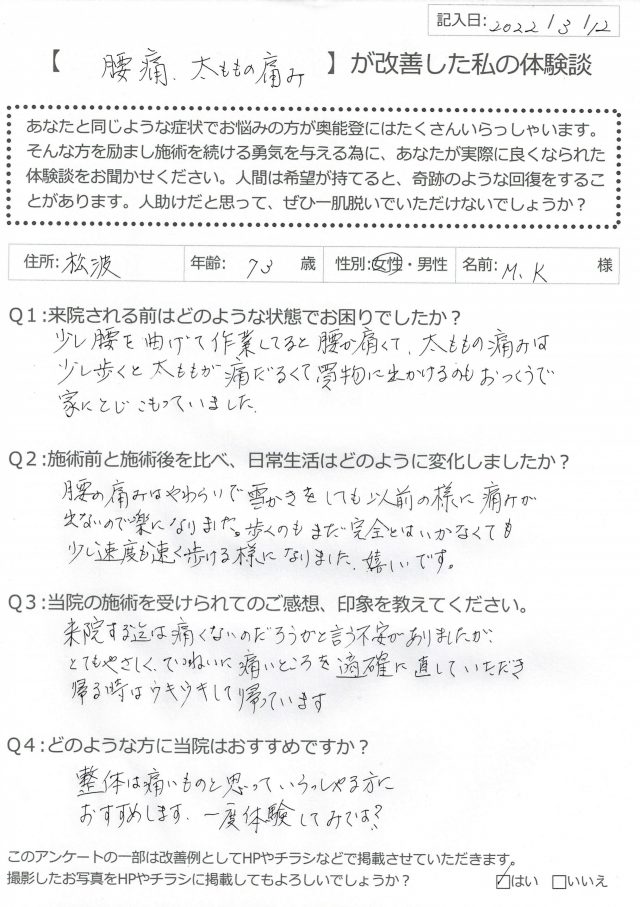 記入日: 2022/3/12
【 腰痛、太ももの痛み 】が改善した私の体験談
あなたと同じような症状でお悩みの方が奥能登にはたくさんいらっしゃいます。
そんな方を励まし施術を続ける勇気を与える為に、あなたが実際に良くなられた
体験談をお聞かせください。人間は希望が持てると、奇跡のような回復をするこ
とがあります。人助けだと思って、ぜひ一肌脱いでいただけないでしょうか？
住所: 松波 年齢: 73 歳 性別:女性・男性 名前: M.K 様
Q1:来院される前はどのような状態でお困りでしたか？
少し腰を曲げて作業してると腰が痛くて、太ももの痛みは
少し歩くと太ももが痛だるくて買物に出かけるのもおっくうで
家にとじこもっていました。
Q2:施術前と施術後を比べ、日常生活はどのように変化しましたか？
腰の痛みはやわらいで雪かきをしても以前の様に痛みが
出ないので楽になりました。歩くのもまだ完全とはいかなくても
少し速度も速く歩ける様になりました、嬉しいです。
Q3:当院の施術を受けられてのご感想、印象を教えてください。
来院する迄は痛くないのだろうかと言う不安がありましたが、
とてもやさしく、ていねいに痛いところを適確に直していただき
帰る時はウキウキして帰っています
Q4:どのような方に当院はおすすめですか？
整体は痛いものと思っていらっしゃる方に
おすすめします、一度体験してみては？
このアンケートの一部は改善例としてHPやチラシなどで掲載させていただきます。
撮影したお写真をHPやチラシに掲載してもよろしいでしょうか？ ☑はい □いいえ